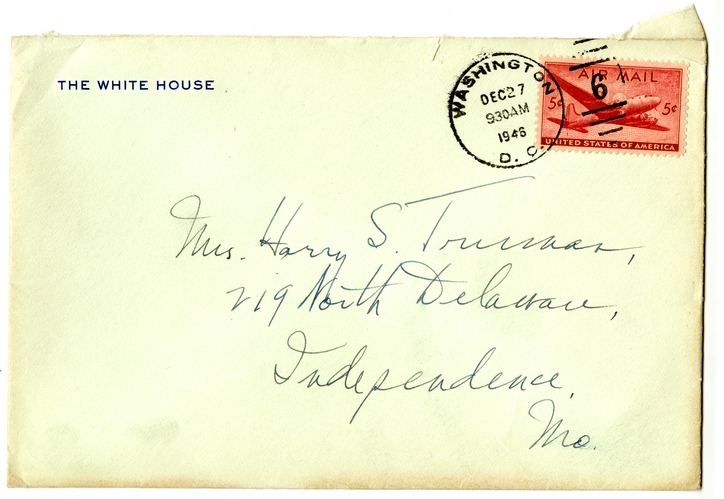 THE WHITE HOUSE
WASHINGTON
DEC 27
930 AM
1946
D. C.
6
AIR MAIL
5¢ 5¢
UNITED STATES OF AMERICA
Mrs. Harry S. Truman,
219 North Delaware,
Independence,
Mo.